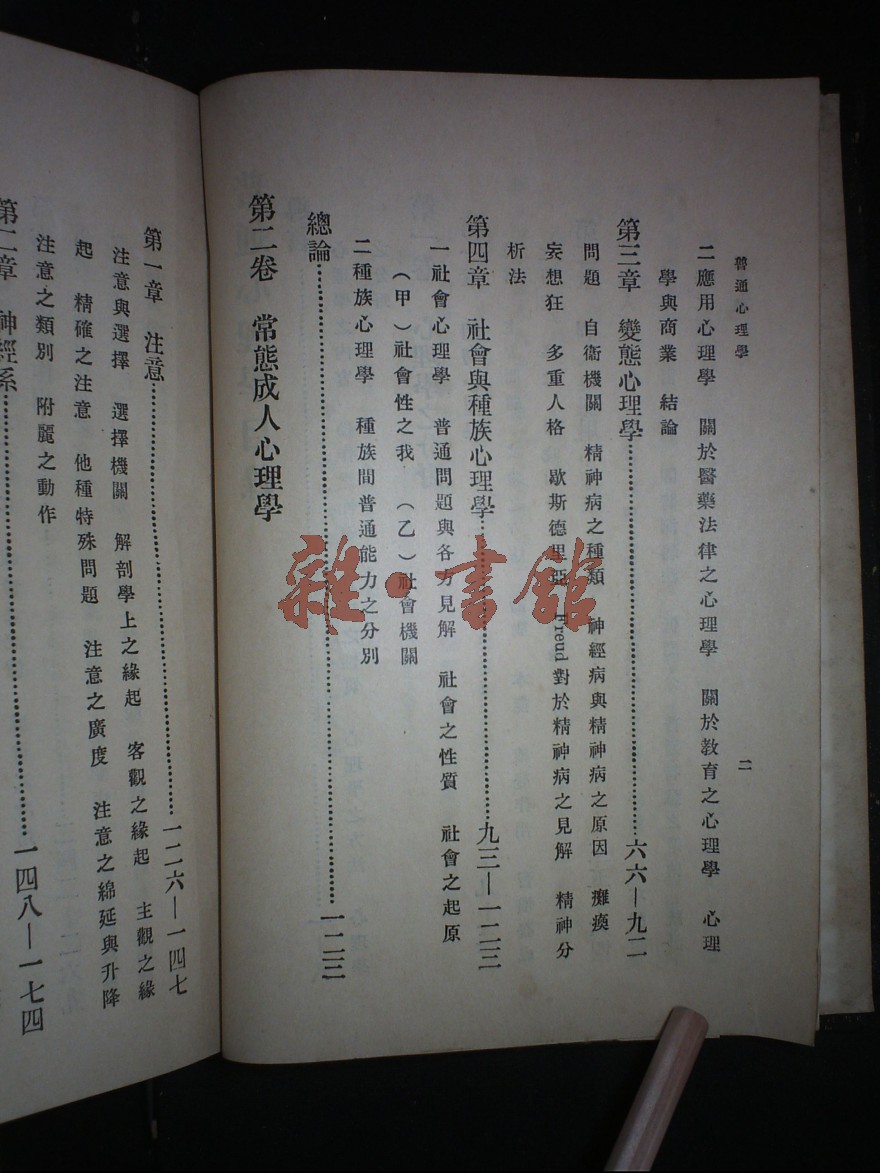 普通心理學
二
二應用心理學　關於醫藥法律之心理學　關於教育之心理學　心理
學與商業　結論
第三章　變態心理學……六六—九二
問題　自衞機關　精神病之種類　神經病與精神病之原因　癱瘓
妄想狂　多重人格　歇斯德里亞　Freud對於精神病之見解　精神分
析法
第四章　社會與種族心理學……九三—一二三
一社會心理學　普通問題與各方見解　社會之性質　社會之起原
（甲）社會性之我　（乙）社會機關
二種族心理學　種族間普通能力之分別
總論……一二三
第二卷　常態成人心理學
第一章　注意……一二六—一四七
注意與選擇　選擇機關　解剖學上之緣起　客觀之緣起　主觀之緣
起　精確之注意　他種特殊問題　注意之廣度　注意之綿延與升降
注意之類別　附麗之動作
第二章　神經系……一四八—一七四
雜·書館